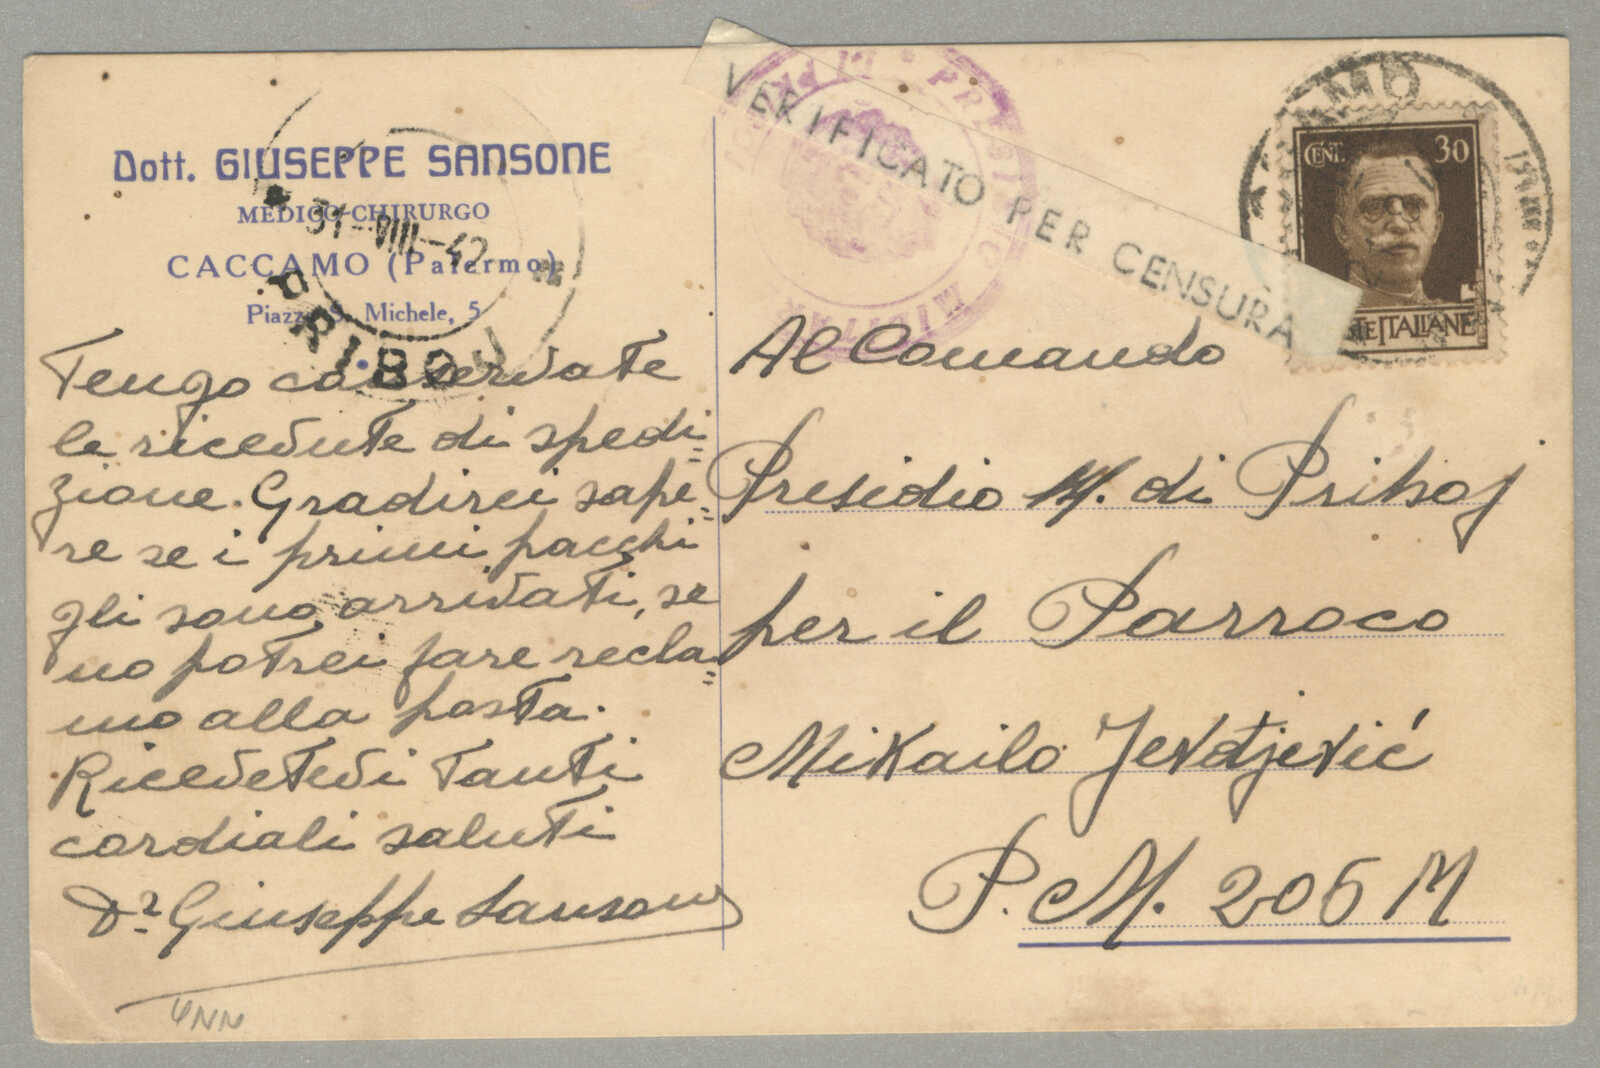 Dott. GIUSEPPE SANSONE
MEDICO-CHIRURGO
CACCAMO (Palermo)
Piazza S. Michele, 5
31-VIII-42
PRIBOJ
Tengo conservate
le ricevute di spedi=
zione. Gradirei sape=
re se i primi pacchi
gli sono arrivati, se
no potrei fare recla=
mo alla posta.
Ricevetevi tanti
cordiali saluti
Dr Giuseppe Sansone
4NN
VERIFICATO PER CENSURA
CENT. 30
POSTE ITALIANE
Al Comando
Presidio M. di Priboj
per il Parroco
Mikailo Jevdjević
P. M. 206 M